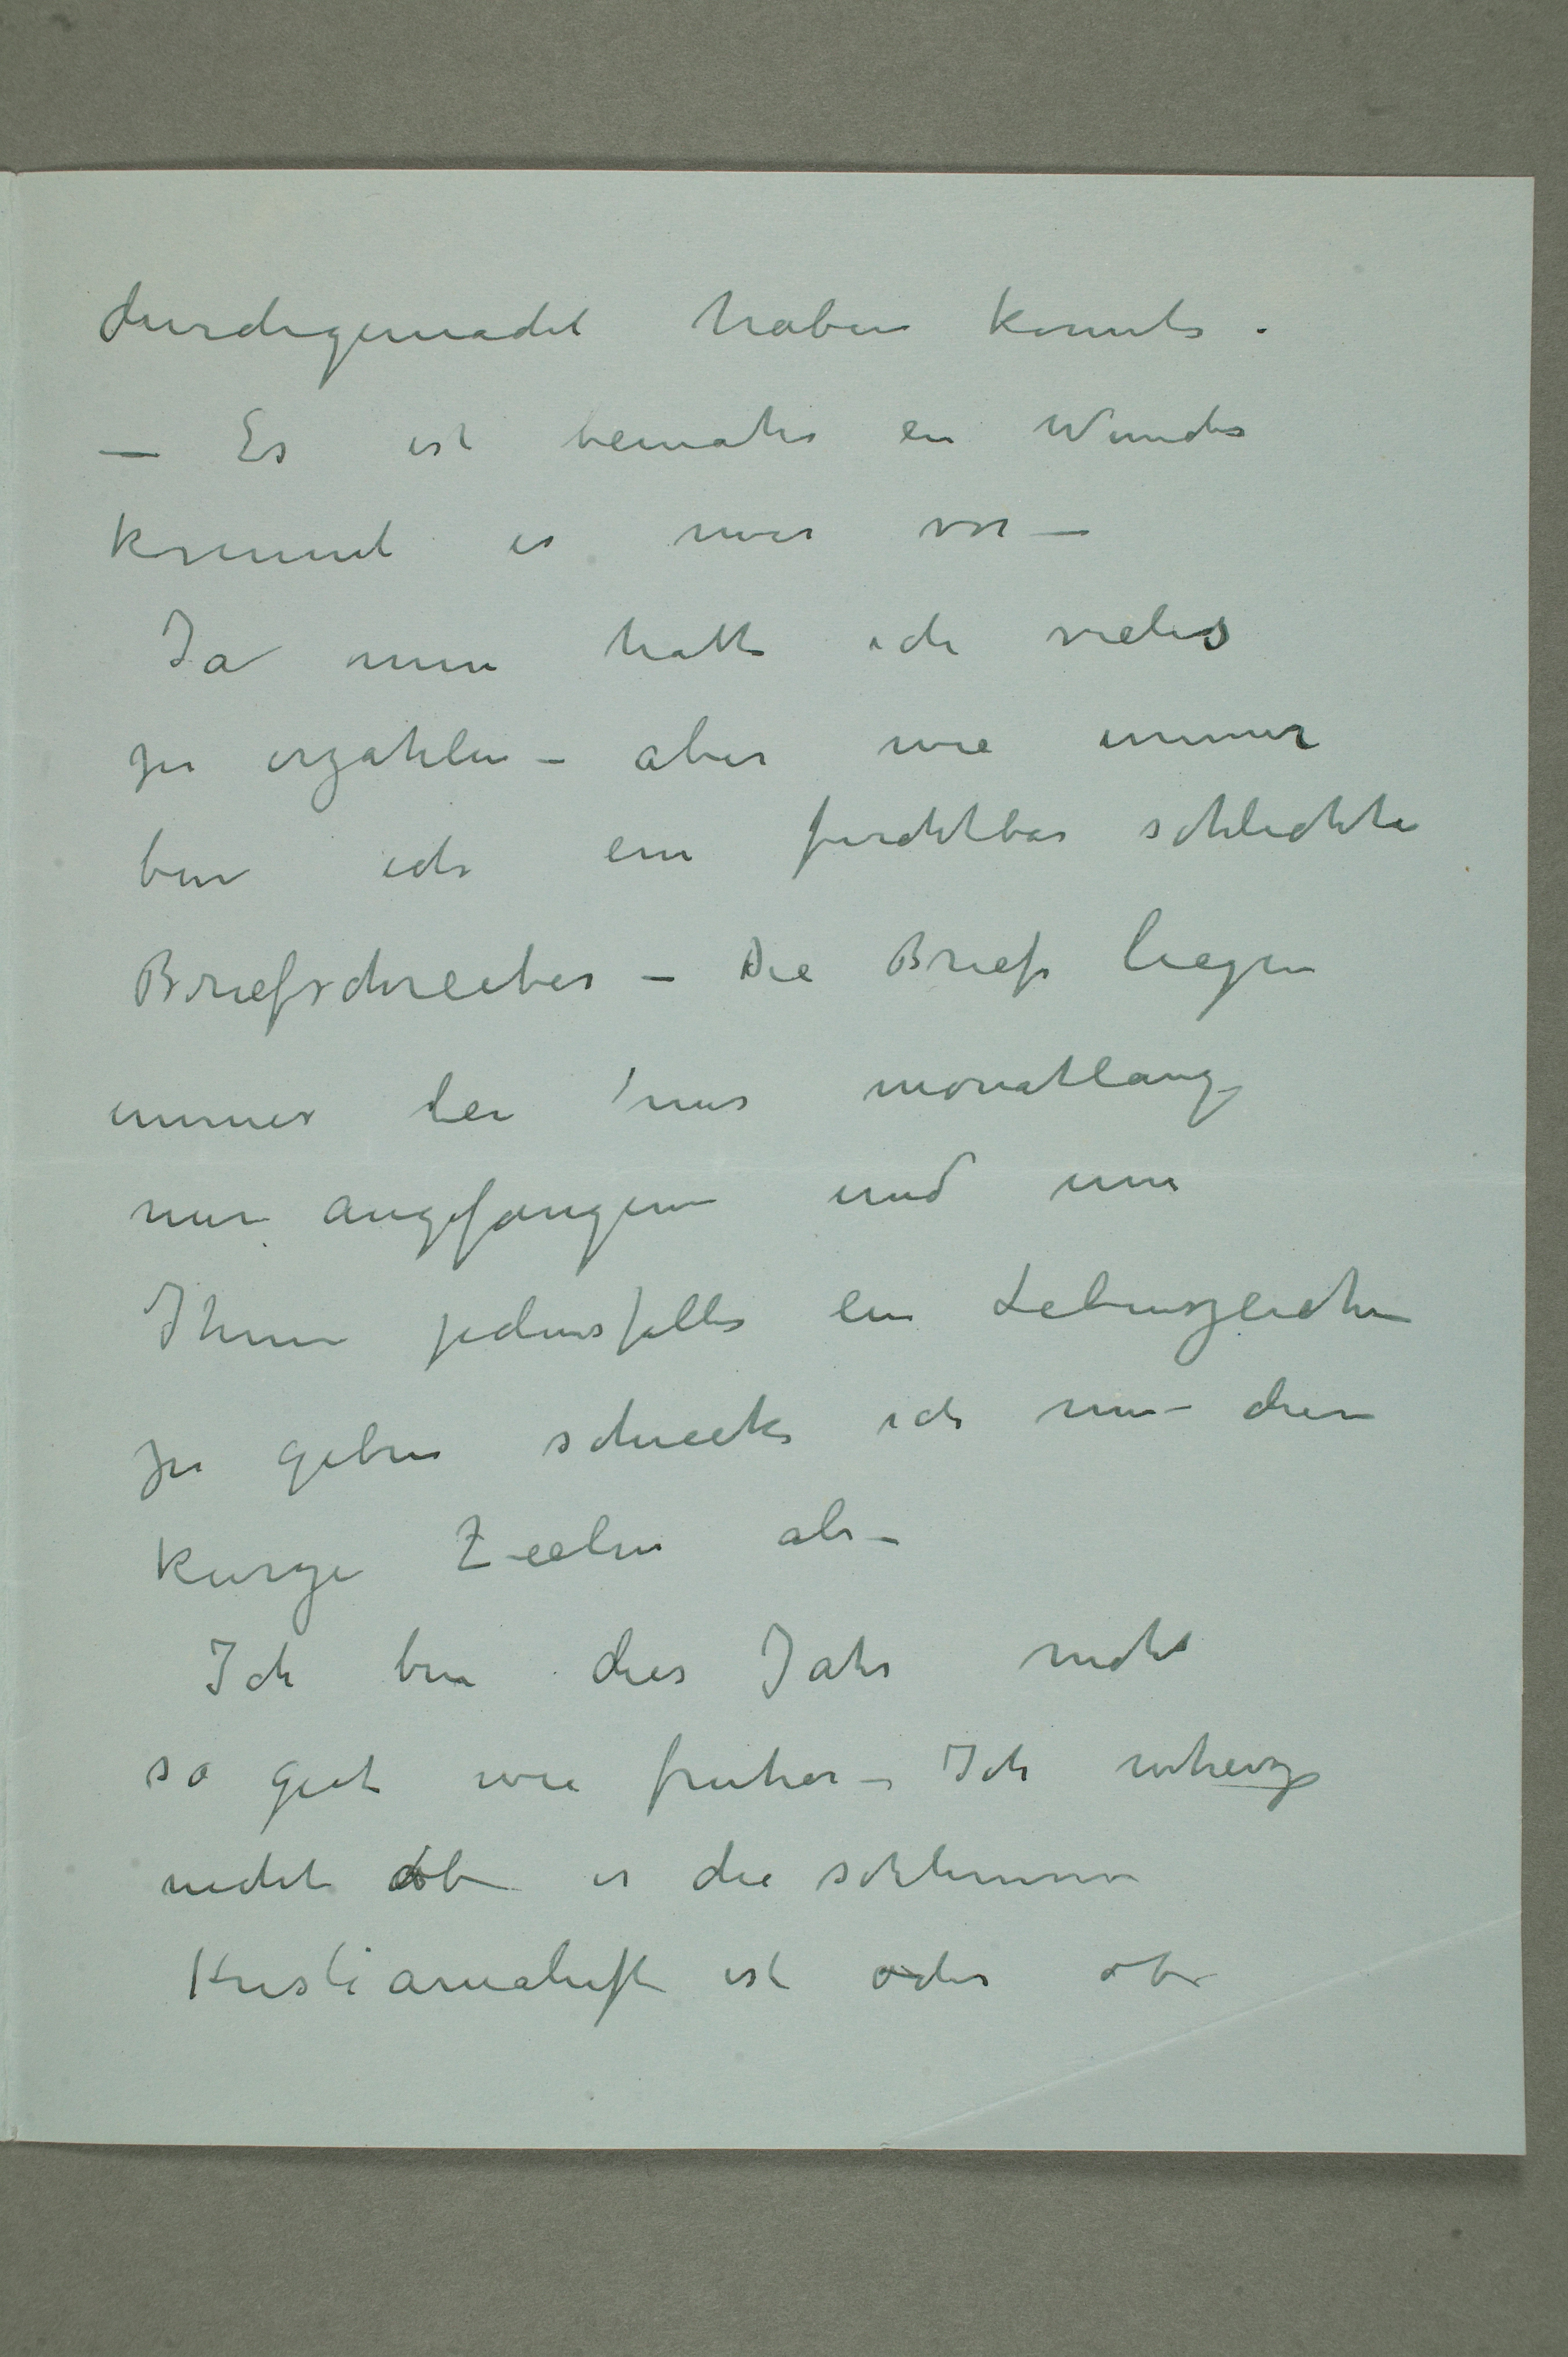 durchgemacht haben konnte.
— Es ist beinahe ein Wunder
kommt es mir vor —
Ja nun hatte ich vieles
zu erzahlen – aber wie immer
bin ich ein furchtbar schlechter
Briefschreiber – Die Briefe liegen
immer bei mir monatlang
nur angefangen und um
Ihnen jedensfalls ein Lebenszeichen
zu geben schicke ich nur diese
kurze Zeilen ab –
Ich bin dies Jahr nicht
so gut wie fruher – Ich weiß
nicht ob es die schlimme
Kristianialuft ist oder ob